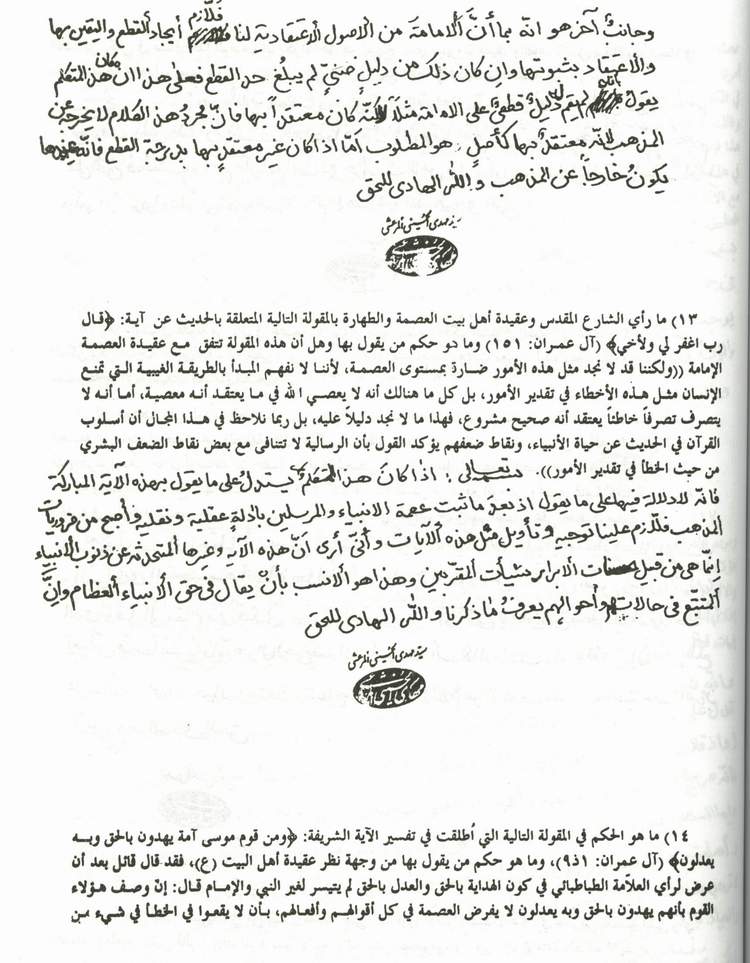 وجانبٌ آخر هو انّه بما أنّ الامامة من الاصول الاعتقادية لنا فلازم أيجاد القطع واليقين بها
والأعتقاد بثبوتها وان كان ذلك من دليلٍ ظنيٍّ لم يبلغ حد القطع فعلى هذا ان كان هذا المتكلم
يقول بانّه لم يقم له دليلٌ قطعيٌّ على الامامة مثلاً لكنّه كان معتقداً بها فانّ مجرد هذا الكلام لا يخرجه عن
المذهب لانّه معتقد بها كأصلٍ، هو المطلوب أمّا اذا كان غير معتقدٍ بها بدرجة القطع فانّه عندها
يكونُ خارجاً عن المذهب و اللّٰه الهادى للحق
سيد مهدى الحسينى المرعشى
١٣) ما رأي الشارع المقدس وعقيدة أهل بيت العصمة والطهارة بالمقولة التالية المتعلقة بالحديث عن آية: ﴿قال
رب اغفر لي ولأخي﴾ (آل عمران: ١٥١) وما هو حكم من يقول بها وهل أن هذه المقولة تتفق مع عقيدة العصمة
الإمامة ((ولكننا قد لا نجد مثل هذه الأمور ضارة بمستوى العصمة، لأننا لا نفهم المبدأ بالطريقة الغيبية التي تمنع
الإنسان مثل هذه الأخطاء في تقدير الأمور، بل كل ما هنالك أنه لا يعصي الله في ما يعتقد أنه معصية، أما أنه لا
يتصرف تصرفاً خاطئاً يعتقد أنه صحيح مشروع، فهذا ما لا نجد دليلاً عليه، بل ربما نلاحظ في هذا المجال أن أسلوب
القرآن في الحديث عن حياة الأنبياء، ونقاط ضعفهم يؤكد القول بأن الرسالية لا تتنافى مع بعض نقاط الضعف البشري
من حيث الخطأ في تقدير الأمور)).
بسمه تعالى: اذا كان هذا المتكلم يستدلُ على ما يقول بهذه الآية المباركة
فانّه لا دلالة فيها على ما يقول اذ بعد ما ثبت عصمة الانبياء والمرسلين بأدلةٍ عقلية و نقلية و أصبح من ضروريات
المذهب فلازم علينا توجيه و تأويل مثل هذه الآيات و أنّى أرى انّ هذه الآية وغيرها المتحدثة عن ذنوب الأنبياء
إنّما هى من قبيل حسنات الابرار سيئات المقربين وهذا هو الانسب بأنْ يقال فى حق الانبياء العظام وانّ
المتتبّع فى حالاتهم وأحوالهم يعرفُ ما ذكرنا و اللّٰه الهادى للحق
سيد مهدى الحسينى المرعشى
١٤) ما هو الحكم في المقولة التالية التي أُطلقت في تفسير الآية الشريفة: ﴿ومن قوم موسى أمة يهدون بالحق وبه
يعدلون﴾ (آل عمران: ١٥٩)، وما هو حكم من يقول بها من وجهة نظر عقيدة أهل البيت (ع)، فقد قال قائل بعد أن
عرض لرأي العلاّمة الطباطبائي في كون الهداية بالحق والعدل بالحق لم يتيسر لغير النبي والإمام قال: إنّ وصف هؤلاء
القوم بأنهم يهدون بالحق وبه يعدلون لا يفرض العصمة في كل أقوالهم وأفعالهم، بأن لا يقعوا في الخطأ في شيء من